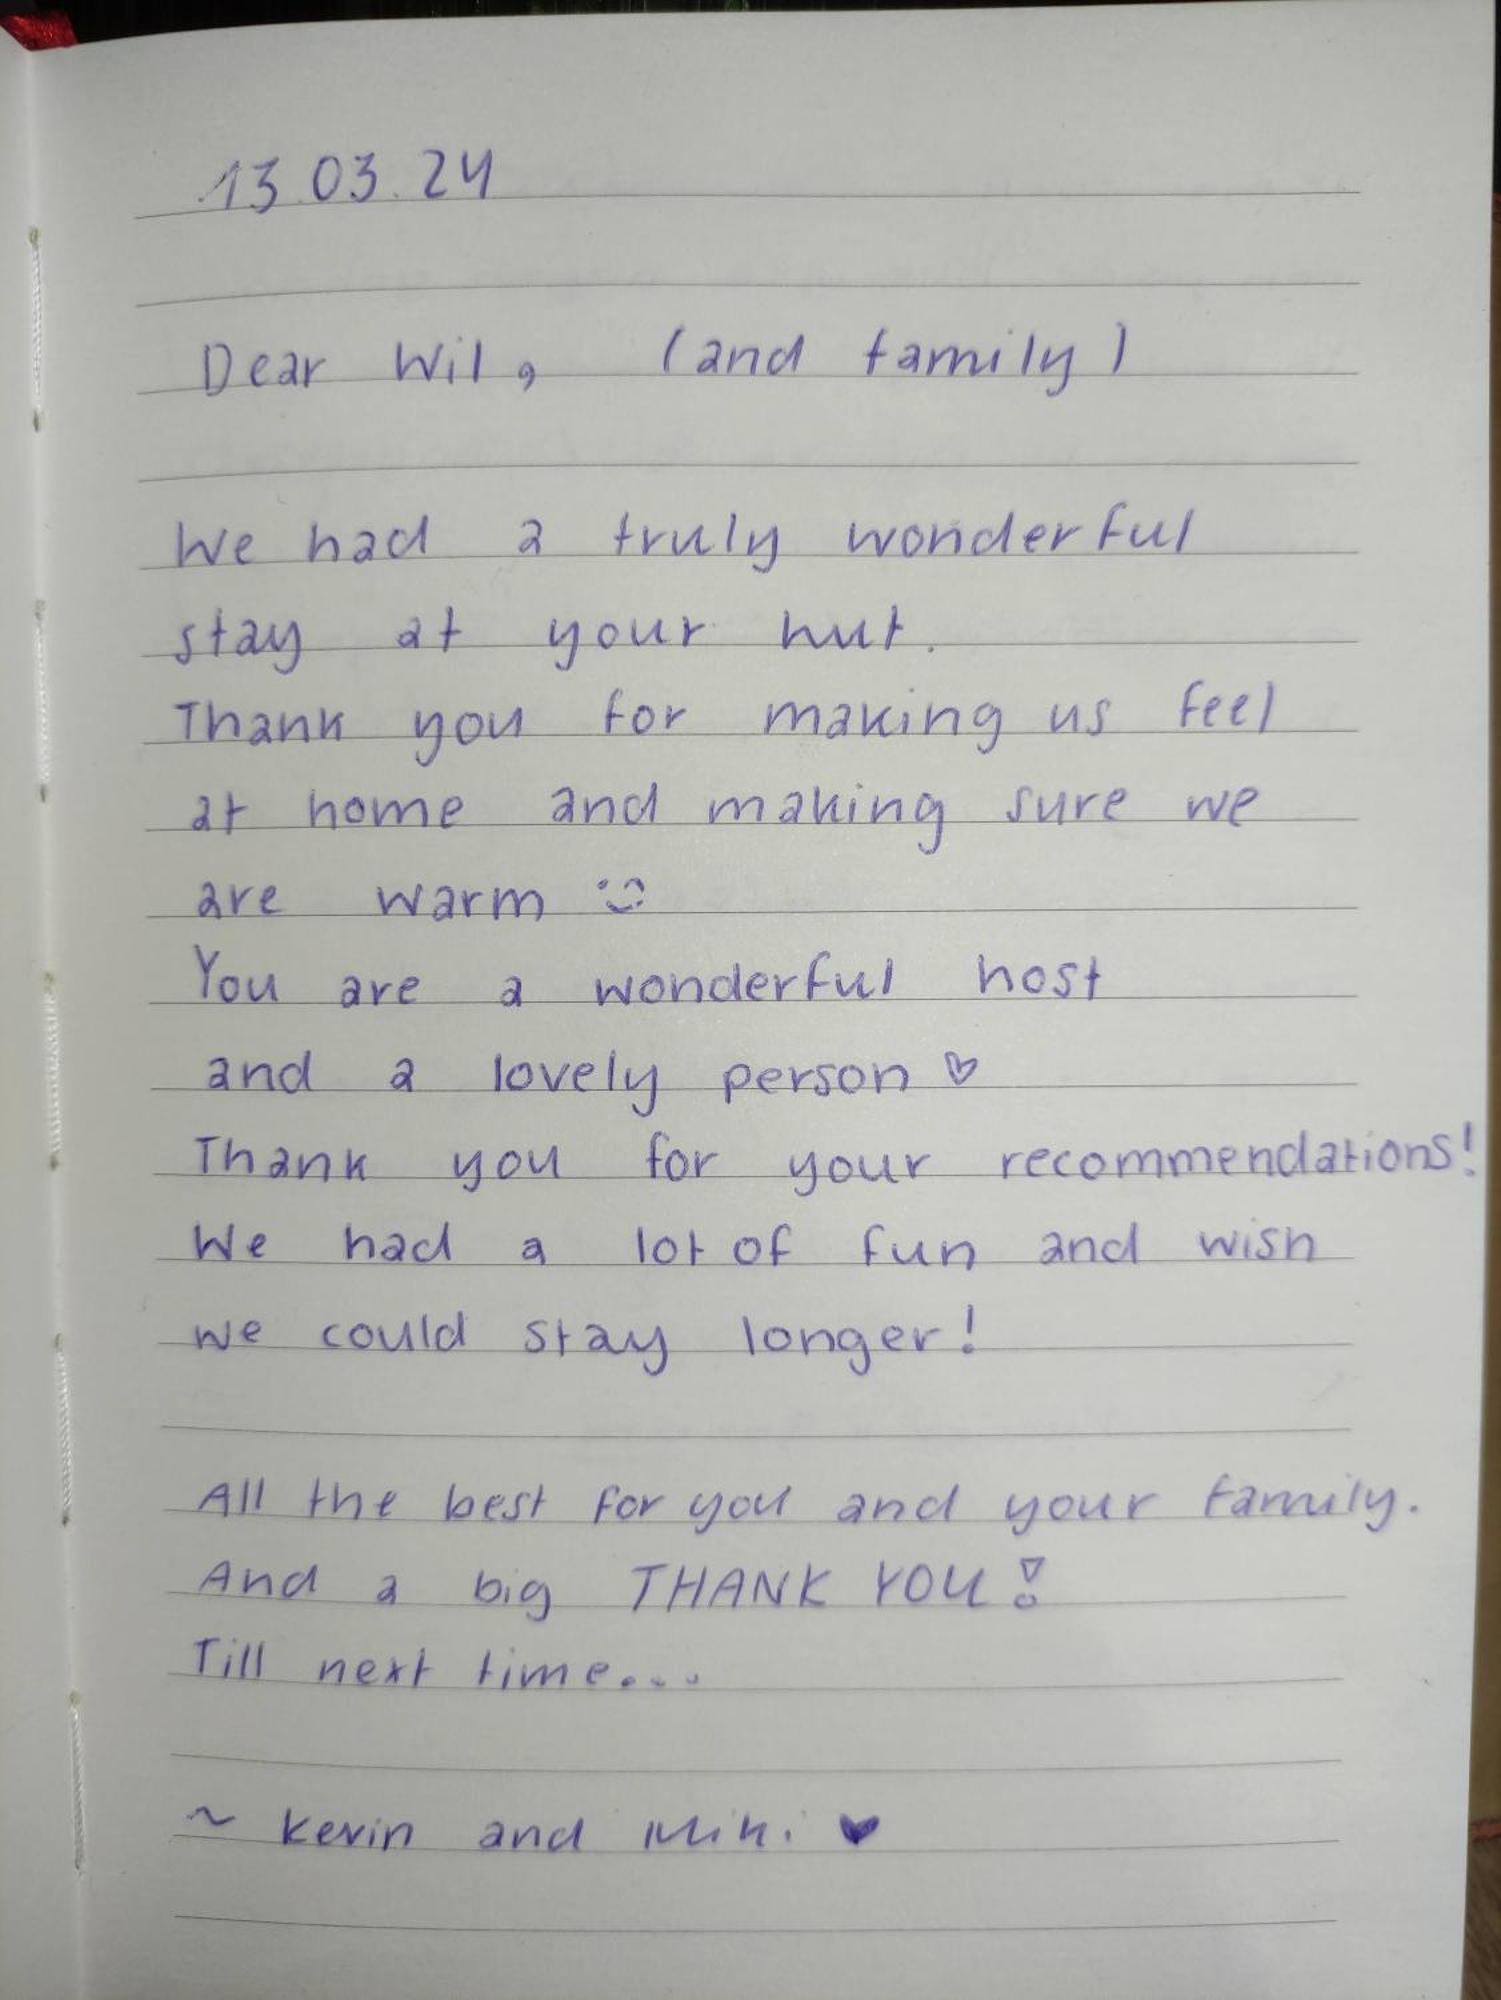 13.03.24
Dear Wil, (and family)
We had a truly wonderful
stay at your hut.
Thank you for making us feel
at home and making sure we
are warm :)
You are a wonderful host
and a lovely person ♡
Thank you for your recommendations!
We had a lot of fun and wish
we could stay longer!
All the best for you and your family.
And a big THANK YOU!
Till next time...
~ Kevin and Miki ♥